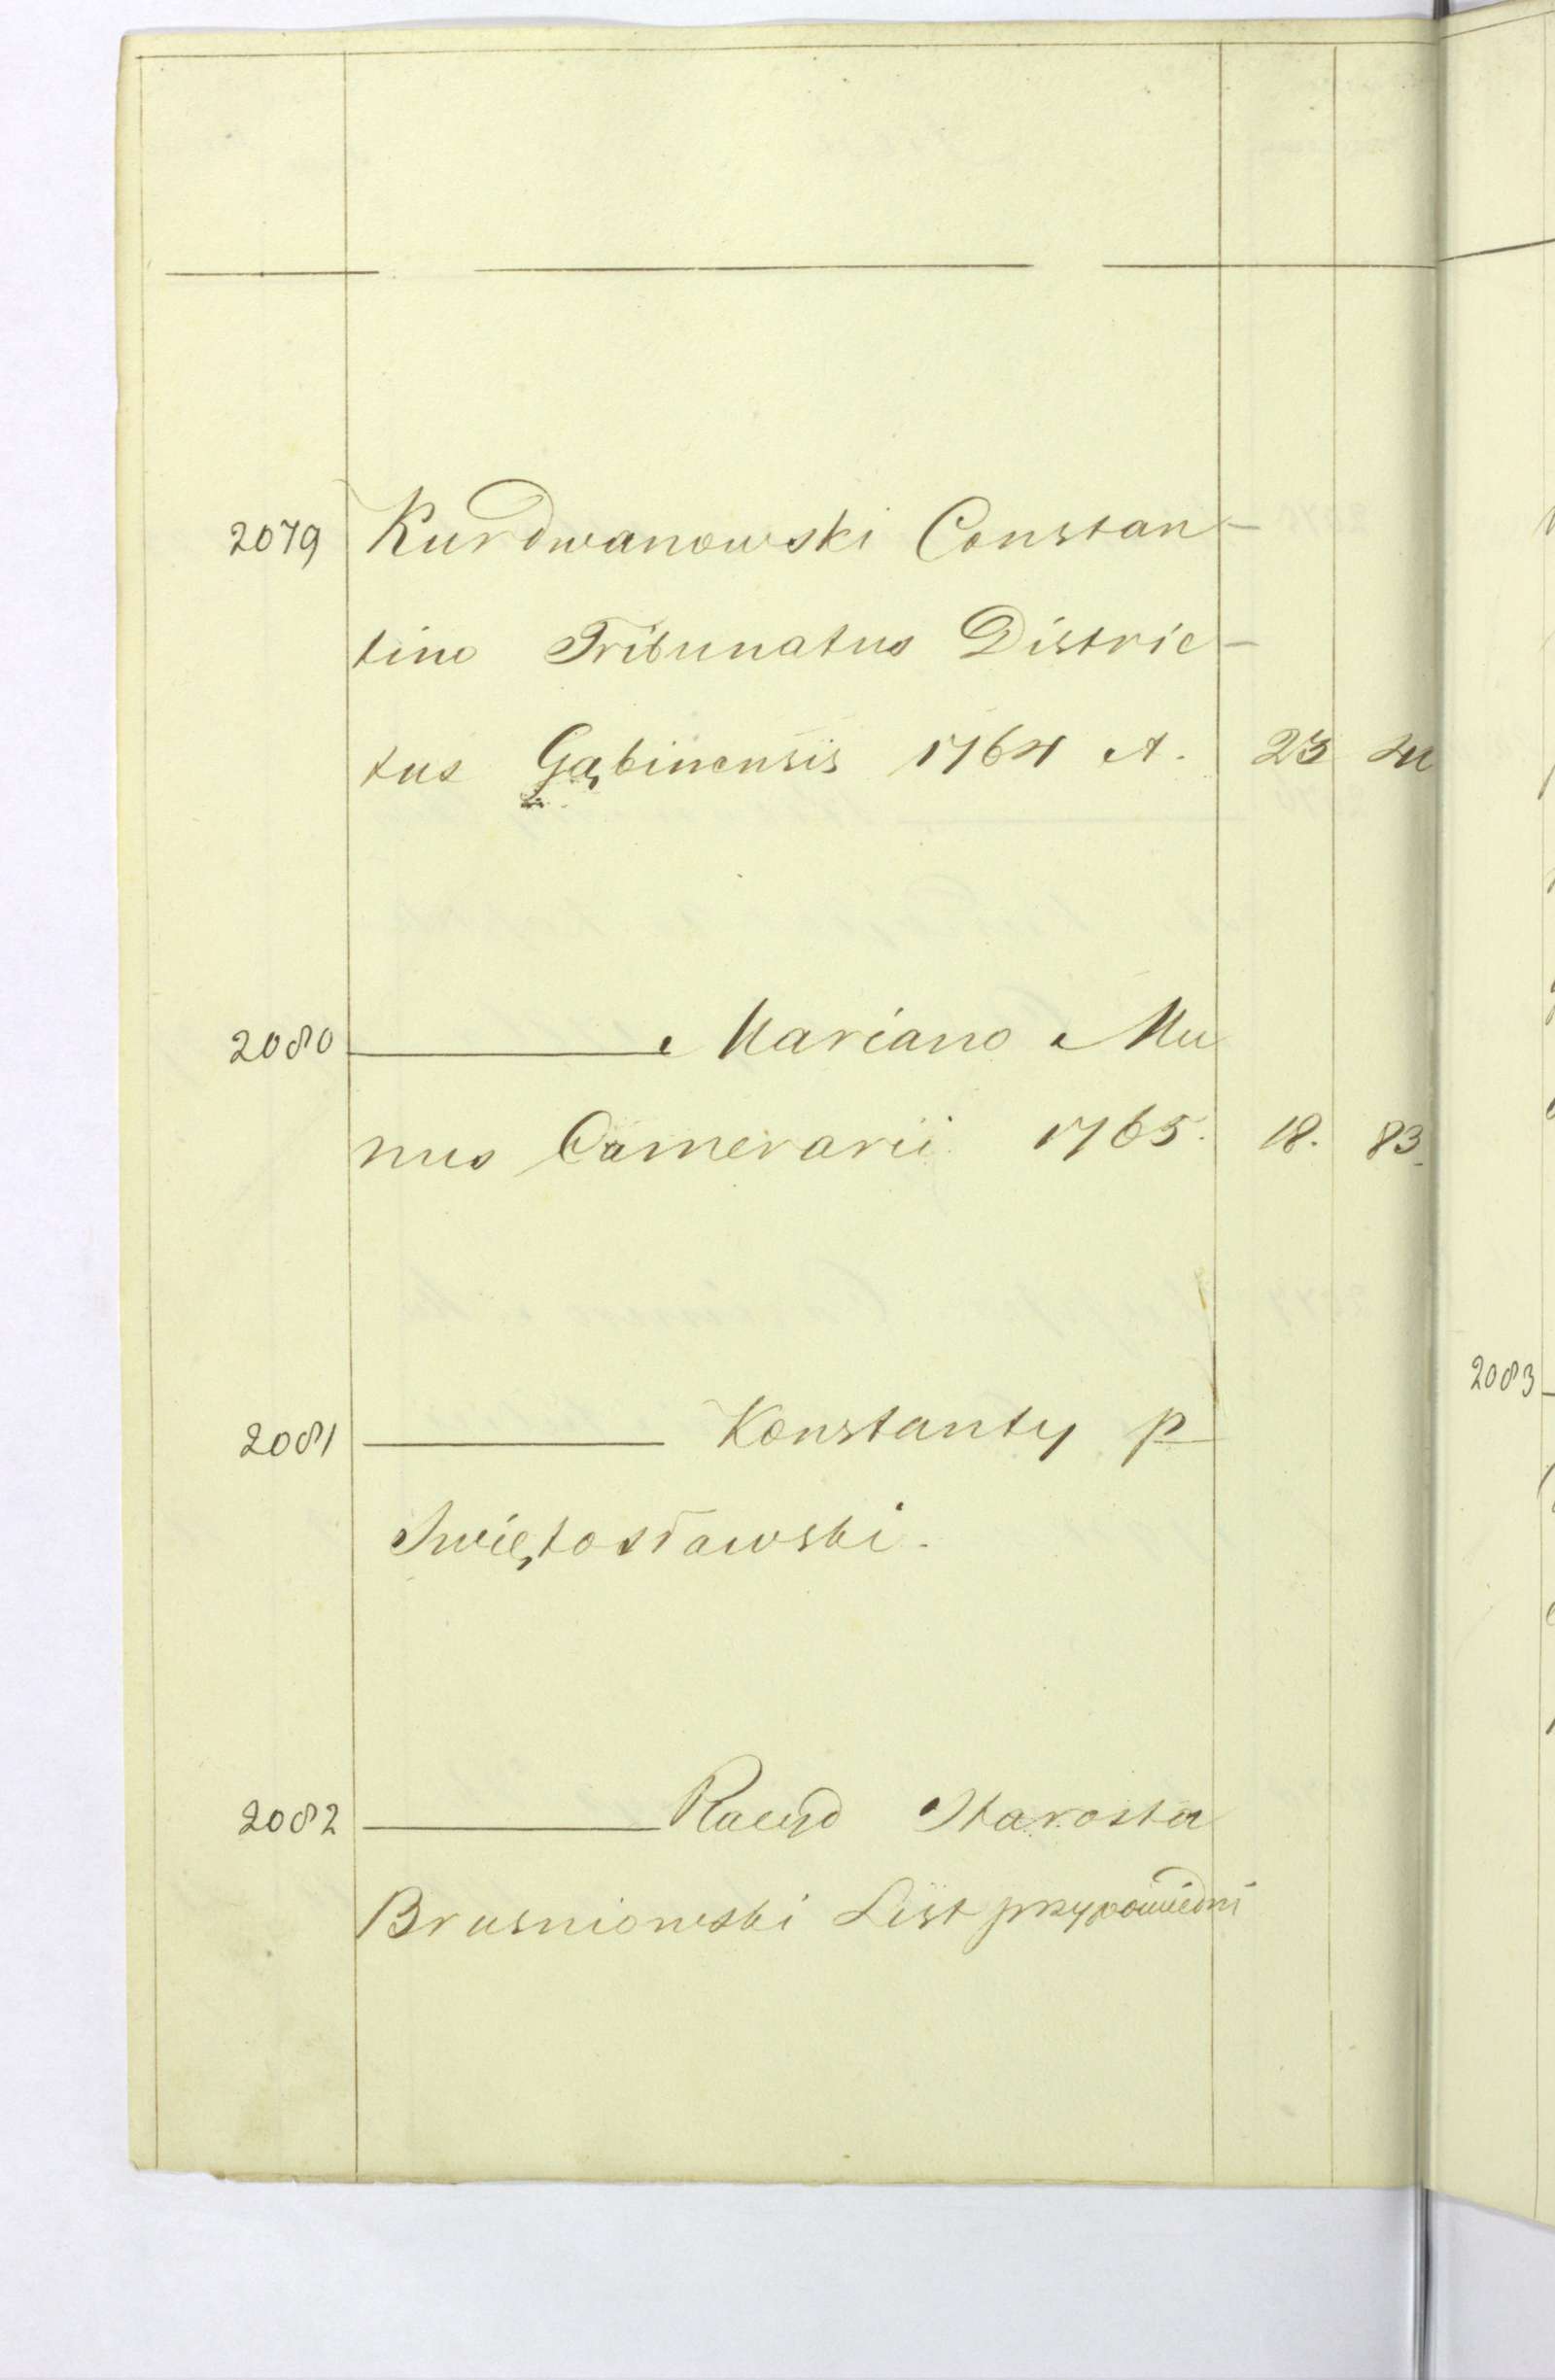 2079 Kurdwanowski Constan-
tino Tribunatus Distric-
tus Gąbinensis 1764 A. 23
2080 ——— Mariano Mu
nus Camerarii 1765. 18. 83
2081 ——— Konstanty p
Swiętosławski.
2082 ——— Placyd Starosta
Brusniowski List przypowiedni
2083